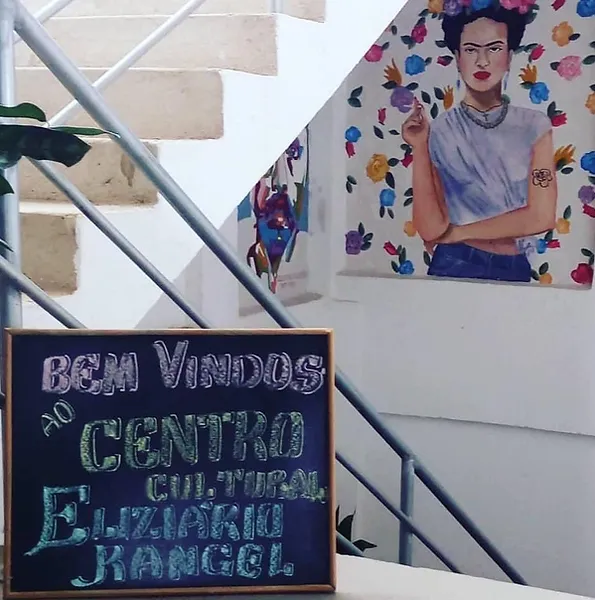 BEM VINDOS
AO
CENTRO
CULTURAL
ELIZIÁRIO
RANGEL